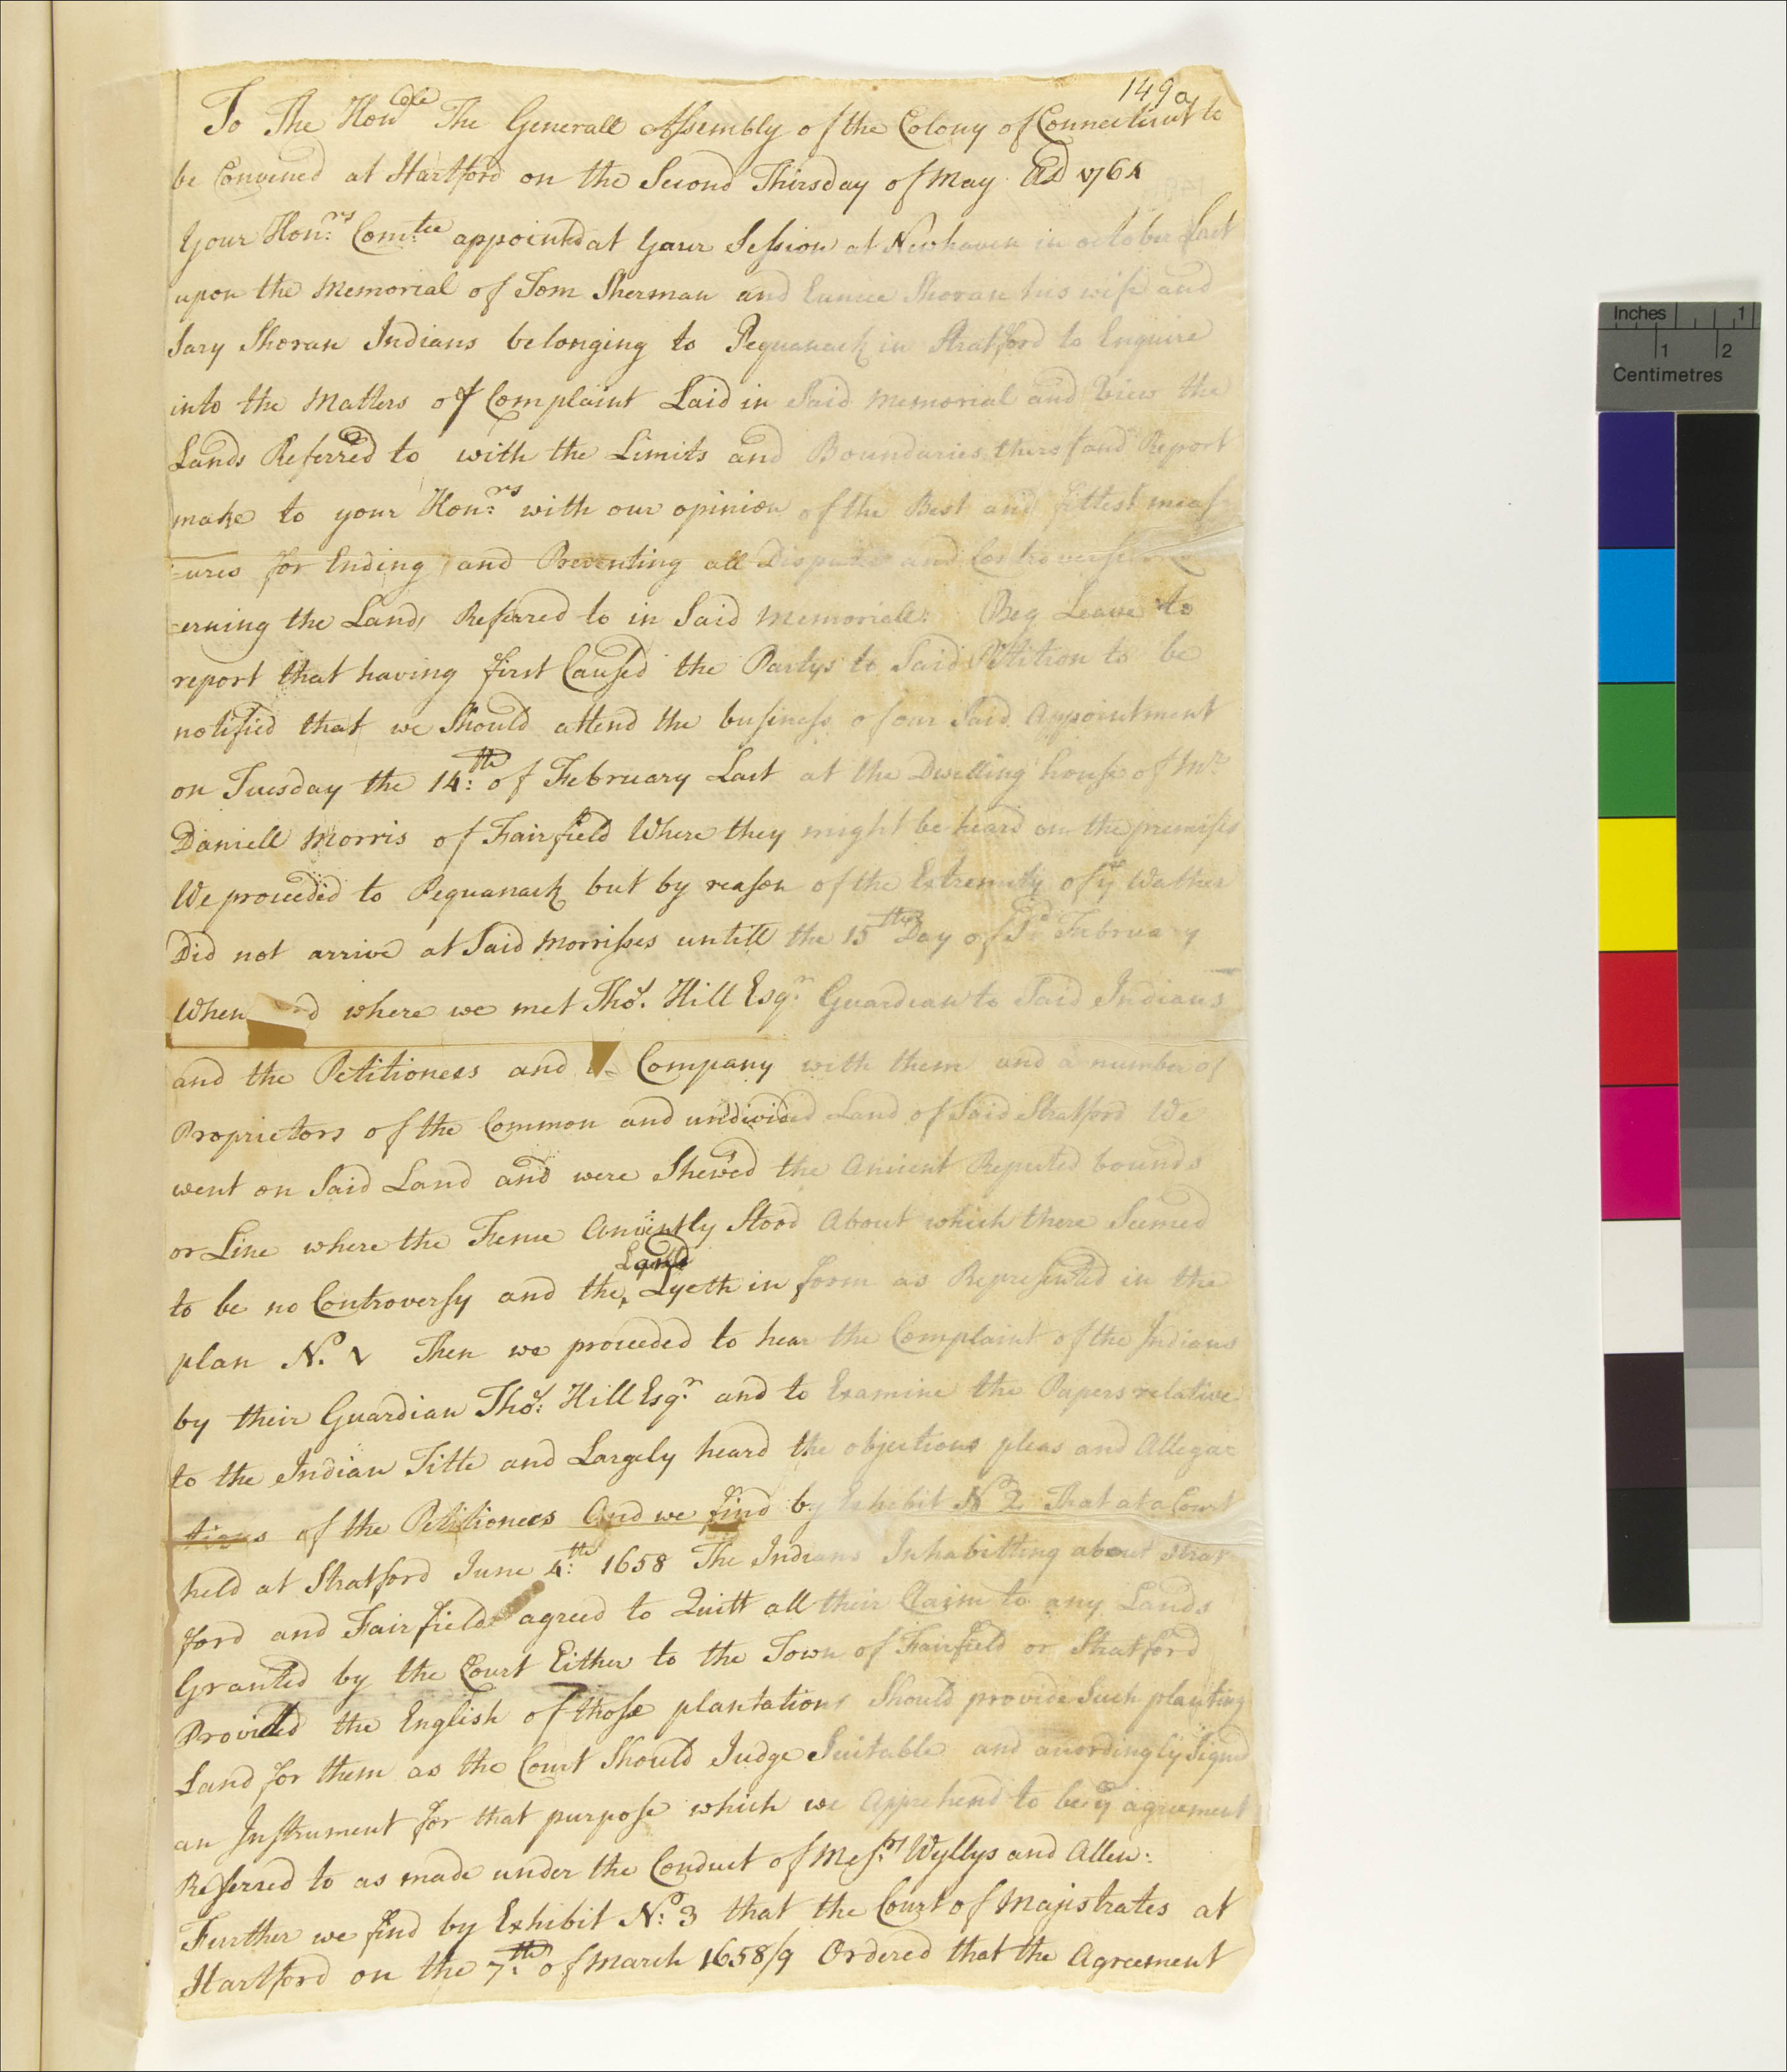 149a
To The Hon.ble The Generall Assembly of the Colony of Connecticut to
be Convened at Hartford on the Second Thirsday of May AD 1764
Your Hon.rs Com.tee appointed at your Session at Newhaven in october Last
upon the Memorial of Tom Sherman and Eunice Shoran his wife and
Sary Shoran Indians belonging to Pequanack in Stratford to Enquire
into the Matters of Complaint Laid in Said Memorial and View the
Lands Referred to with the Limits and Boundaries thereof and Report
make to your Hon.rs with our opinion of the Best and fittest meas
=ures for Ending and Preventing all Disputes and Controversies
=erning the Lands Referred to in Said Memoriall: Beg Leave to
report that having first Caused the Partys to Said Petition to be
notified that we Should attend the business of our Said Appointment
on Tuesday the 14:th of February Last at the Dwelling house of Mr
Daniell Morris of Fairfield Where they might be heard on the premises
We proceeded to Pequanack but by reason of the Extremity of ye Wather
Did not arrive at Said Morrisses untill the 15th Day of Sd February
When and where we met Thos. Hill Esqr. Guardian to Said Indians
and the Petitioners and Company with them and a number of
Proprietors of the Common and undivided Land of Said Stratford We
went on Said Land and were Shewed the Ancient Reputed bounds
or Line where the Fence Anciently Stood About which there Seemed
Land
to be no Controversy and the ‸ Lyeth in form as Represented in the
plan No. 1 Then we proceeded to hear the Complaint of the Indians
by their Guardian Thos: Hill Esqr. and to Examine the Papers relative
to the Indian Title and Largely heard the objections pleas and Allega=
tions of the Petitioners And we find by Exhibit No 2 That at a Court
held at Stratford June 4:th 1658 The Indians Inhabitting about Strat
ford and Fairfield agreed to Quitt all their Claim to any Lands
Granted by the Court Either to the Town of Fairfield or Stratford
Provided the English of those plantations Should provide Such planting
Land for them as the Court Should Judge Suitable and acordingly Signed
an Instrument for that purpose which we Apprehend to be ye agreement
Referred to as made under the Conduct of Messrs. Wyllys and Allen:
Further we find by Exhibit No: 3 that the Court of Majistrates at
Hartford on the 7:th of March 1658/9 Ordered that the Agreement
Inches 1
1 2
Centimetres